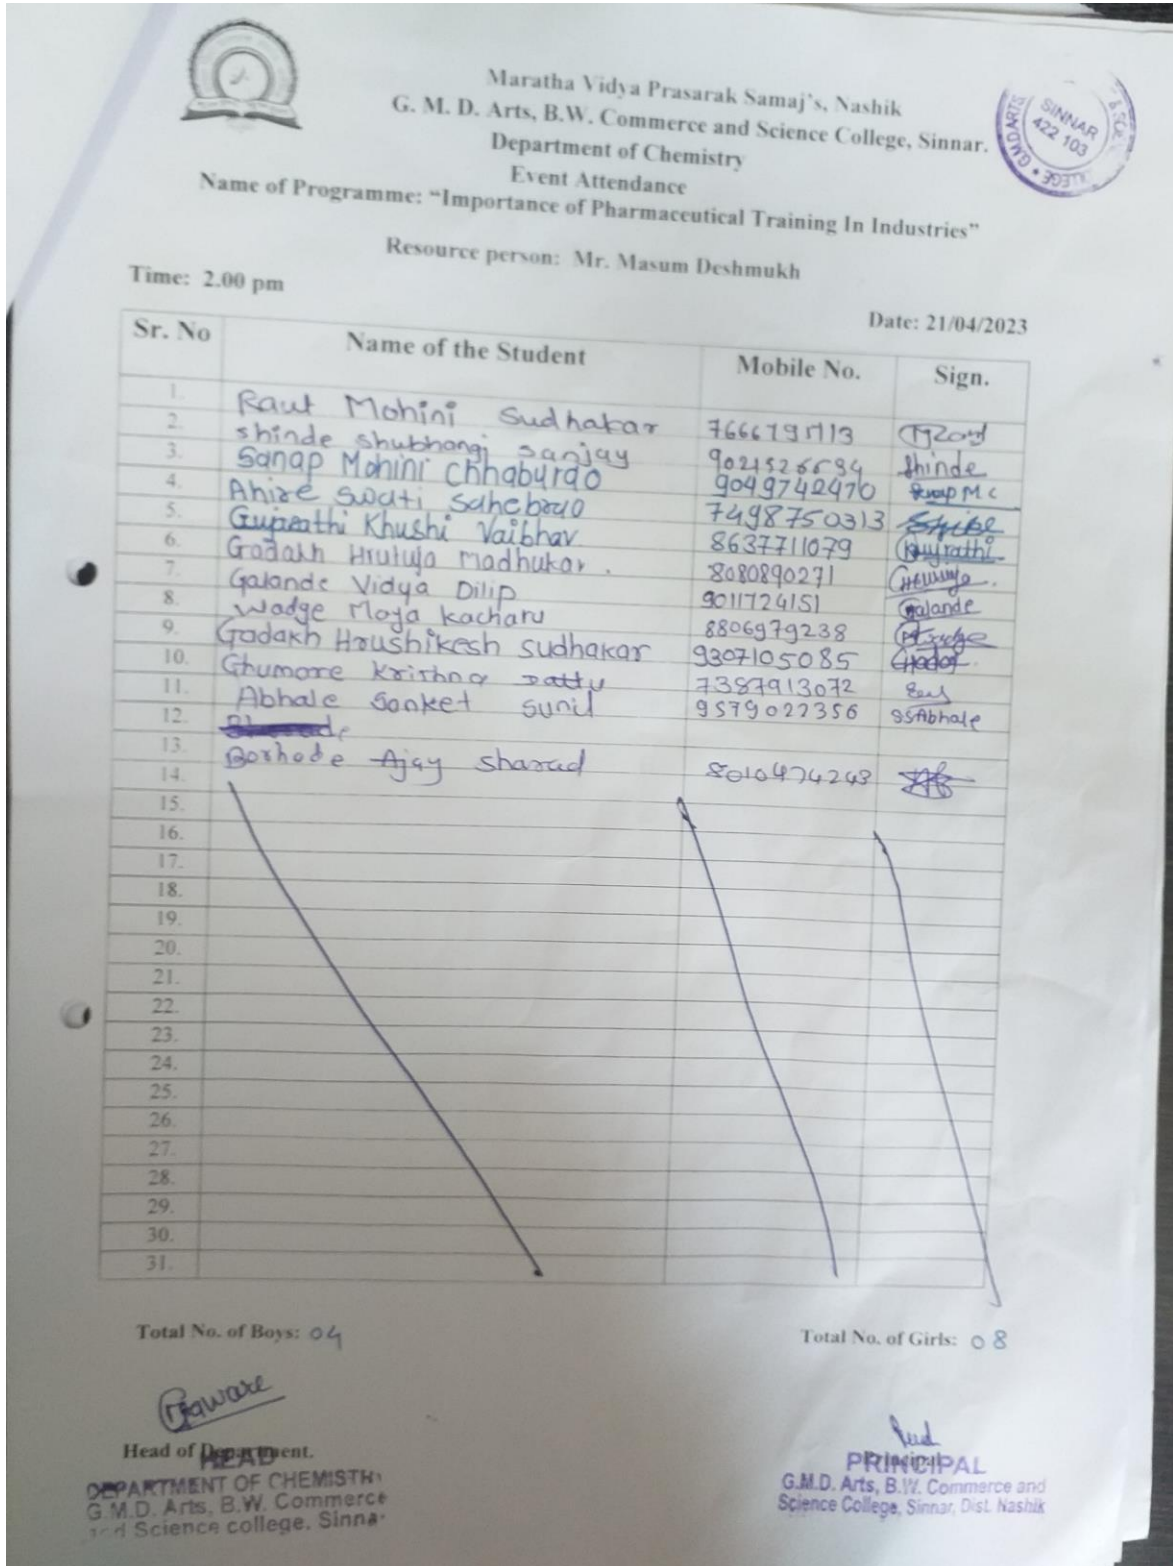 Maratha Vidya Prasarak Samaj's, Nashik
G. M. D. Arts, B.W. Commerce and Science College, Sinnar.
Department of Chemistry
Event Attendance
Name of Programme: “Importance of Pharmaceutical Training In Industries”
Resource person: Mr. Masum Deshmukh
SINNAR
422 103
G.M.D.ARTS
Time: 2.00 pm
Date: 21/04/2023
Sr. No Name of the Student Mobile No. Sign.
1. Raut Mohini Sudhakar
2. Shinde Shubhangi Sanjay 9021526694 Shinde
3. Sanap Mohini Chhaburao 9049742470 Sanap M C
4. Ahire Swati Sahebrao 7498750313
5. Gujrathi Khushi Vaibhav 8637711079 Gujrathi
6. Godakh Hrutuja Madhukar. 8080890271
7. Galande Vidya Dilip 9011724151 Galande
8. Wadge Maya Kacharu 8806979238
9. Godakh Hrushikesh Sudhakar 9307105085
10. Ghumare Krishna Dattu 7387913072
11. Abhale Sanket Sunil 9579022356 SSAbhale
12.
13. Borhode Ajay Sharad 8010474243
14.
15.
16.
17.
18.
19.
20.
21.
22.
23.
24.
25.
26.
27.
28.
29.
30.
31.
Total No. of Boys: 04 Total No. of Girls: 08
Head of Department. Principal
HEAD
DEPARTMENT OF CHEMISTRY
G.M.D. Arts, B.W. Commerce
and Science college, Sinnar
PRINCIPAL
G.M.D. Arts, B.W. Commerce and
Science College, Sinnar, Dist. Nashik